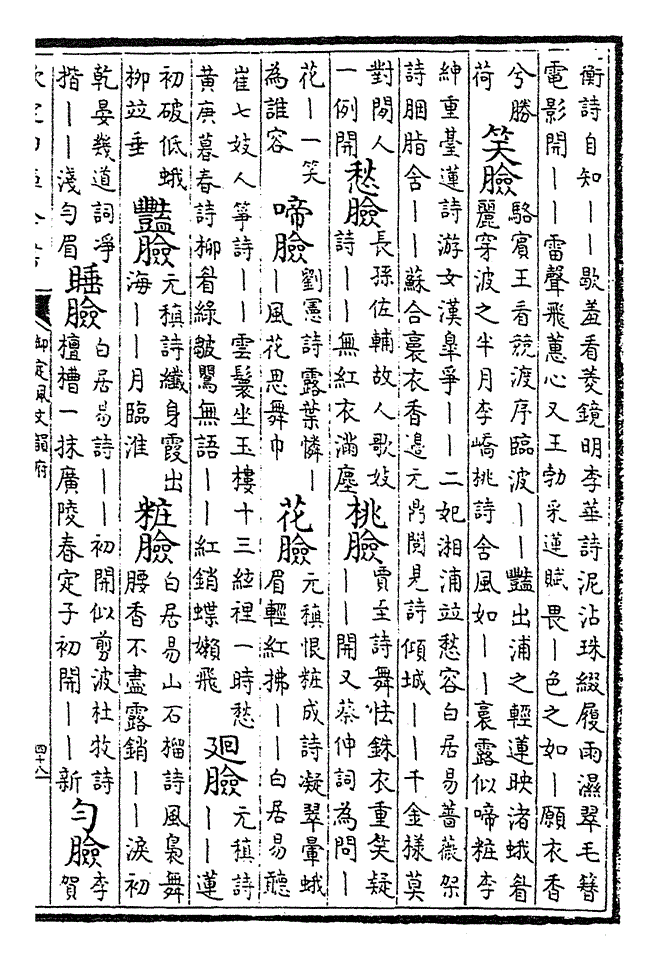 衡詩自知丨丨歇羞看菱鏡明李華詩泥沾珠綴履雨濕翠毛簪
電影開丨丨雷聲飛蕙心又王勃采蓮賦畏丨色之如丨願衣香
兮勝
荷
笑臉
駱賓王看競渡序臨波丨丨豔出浦之輕蓮映渚蛾眉
麗穿波之半月李嶠桃詩含風如丨丨裛露似啼粧李
紳重臺蓮詩游女漢臯爭丨丨二妃湘浦竝愁容白居易薔薇架
詩胭脂含丨丨蘇合裛衣香邉元鼎閱見詩傾城丨丨千金㨾莫
對閒人
一例開
愁臉
長孫佐輔故人歌妓
詩丨丨無紅衣滿塵
桃臉
賈至詩舞怯銖衣重笑疑
丨丨開又蔡伸詞為問丨
花丨一笑
為誰容
啼臉
劉憲詩露葉憐丨
丨風花思舞巾
花臉
元稹恨粧成詩凝翠暈蛾
眉輕紅拂丨丨白居易聽
崔七妓人箏詩丨丨雲鬟坐玉樓十三絃裡一時愁
黃庚暮春詩柳眉綠皺鶯無語丨丨紅銷蝶嬾飛
廻臉
元稹詩
丨丨蓮
初破低蛾
柳竝垂
豔臉
元稹詩纖身霞出
海丨丨月臨淮
粧臉
白居易山石榴詩風裊舞
腰香不盡露銷丨丨淚初
乾晏幾道詞凈
揩丨丨淺勻眉
睡臉
白居易詩丨丨初開似剪波杜牧詩
檀槽一抹廣陵春定子初開丨丨新
勻臉
李
賀
御定佩文韻府
四十八